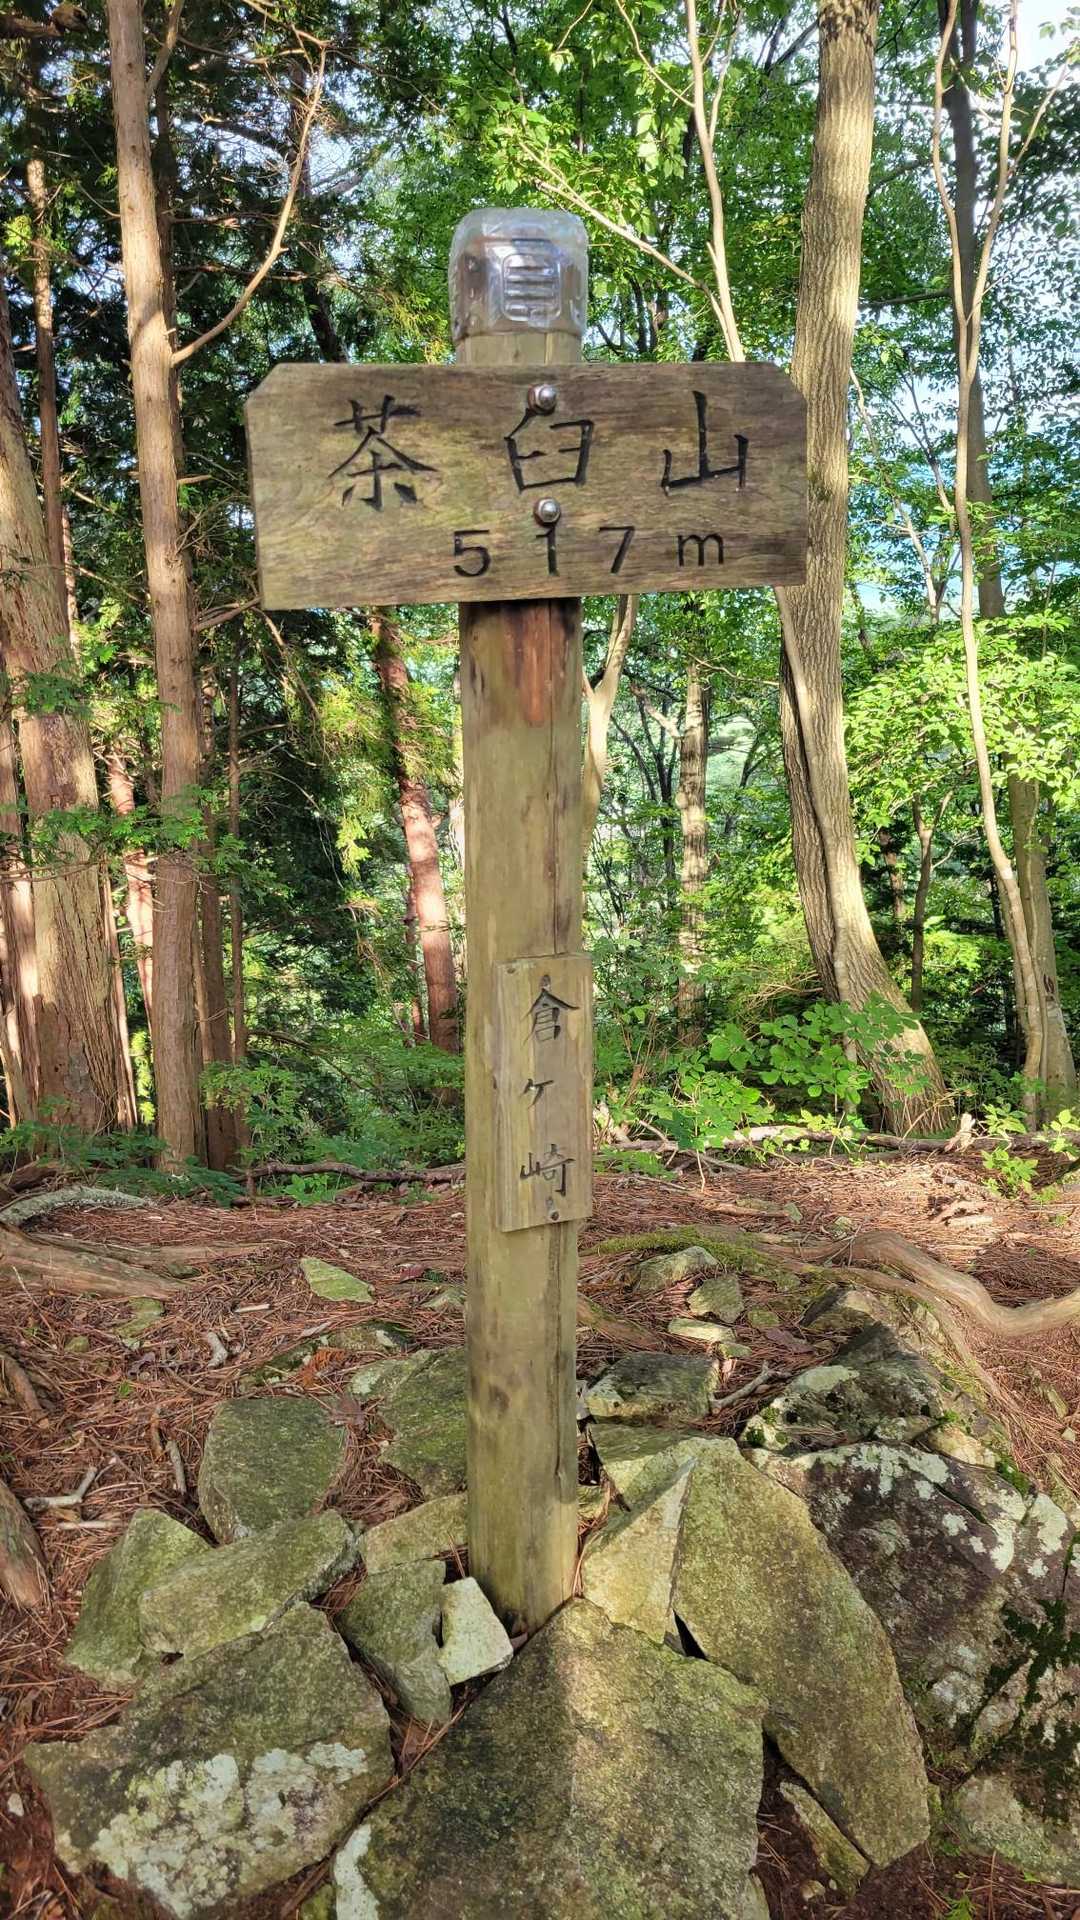 茶臼山
517m
倉ヶ崎